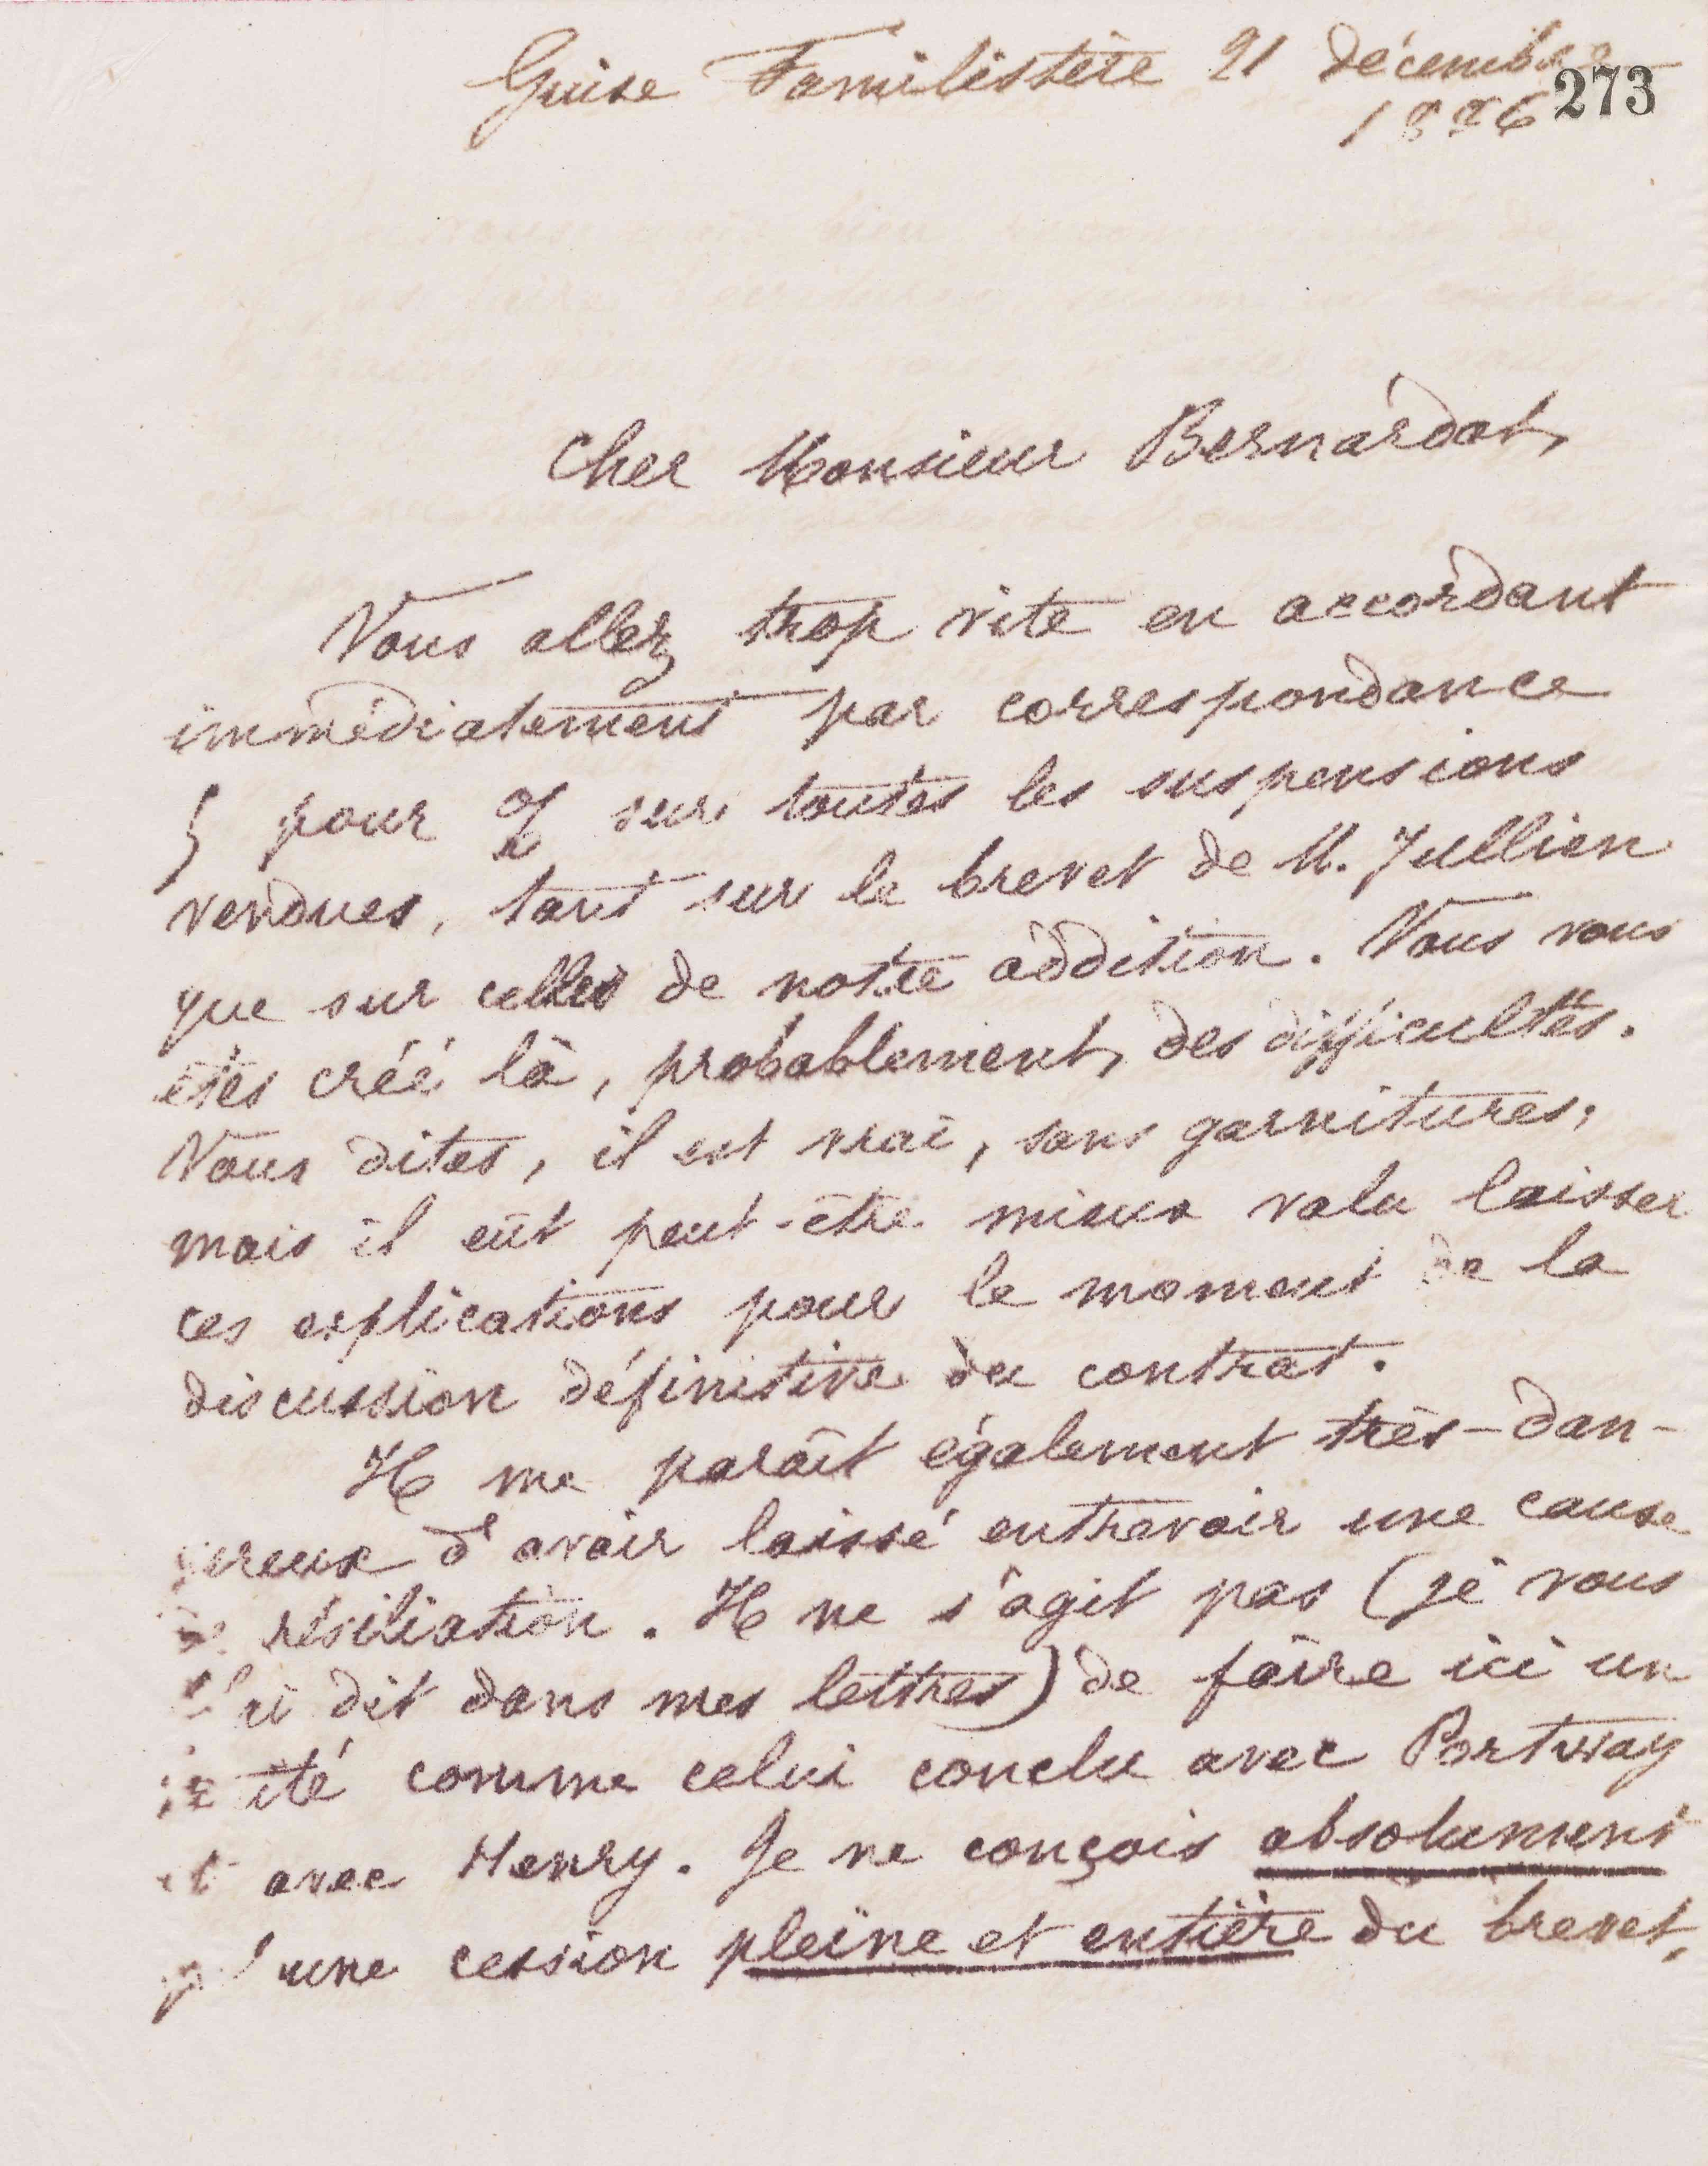 Guise Familistère 21 décembre
1886 273
Cher Monsieur Bernardot,
Vous allez trop vite en accordant
immédiatement par correspondance
5 pour % sur toutes les suspensions
vendues, tant sur le brevet de M. Jullien
que sur celles de notre addition. Vous vous
êtes créé là, probablement, des difficultés.
Vous dites, il est vrai, sans garnitures;
mais il eût peut-être mieux valu laisser
ces explications pour le moment de la
discussion définitive du contrat.
Il me paraît également très-dan-
gereux d'avoir laissé entrevoir une cause
de résiliation. Il ne s'agit pas (je vous
l'ai dit dans mes lettres) de faire ici un
traité comme celui conclu avec Portway
et avec Henry. Je ne conçois absolument
qu'une cession pleine et entière du brevet,